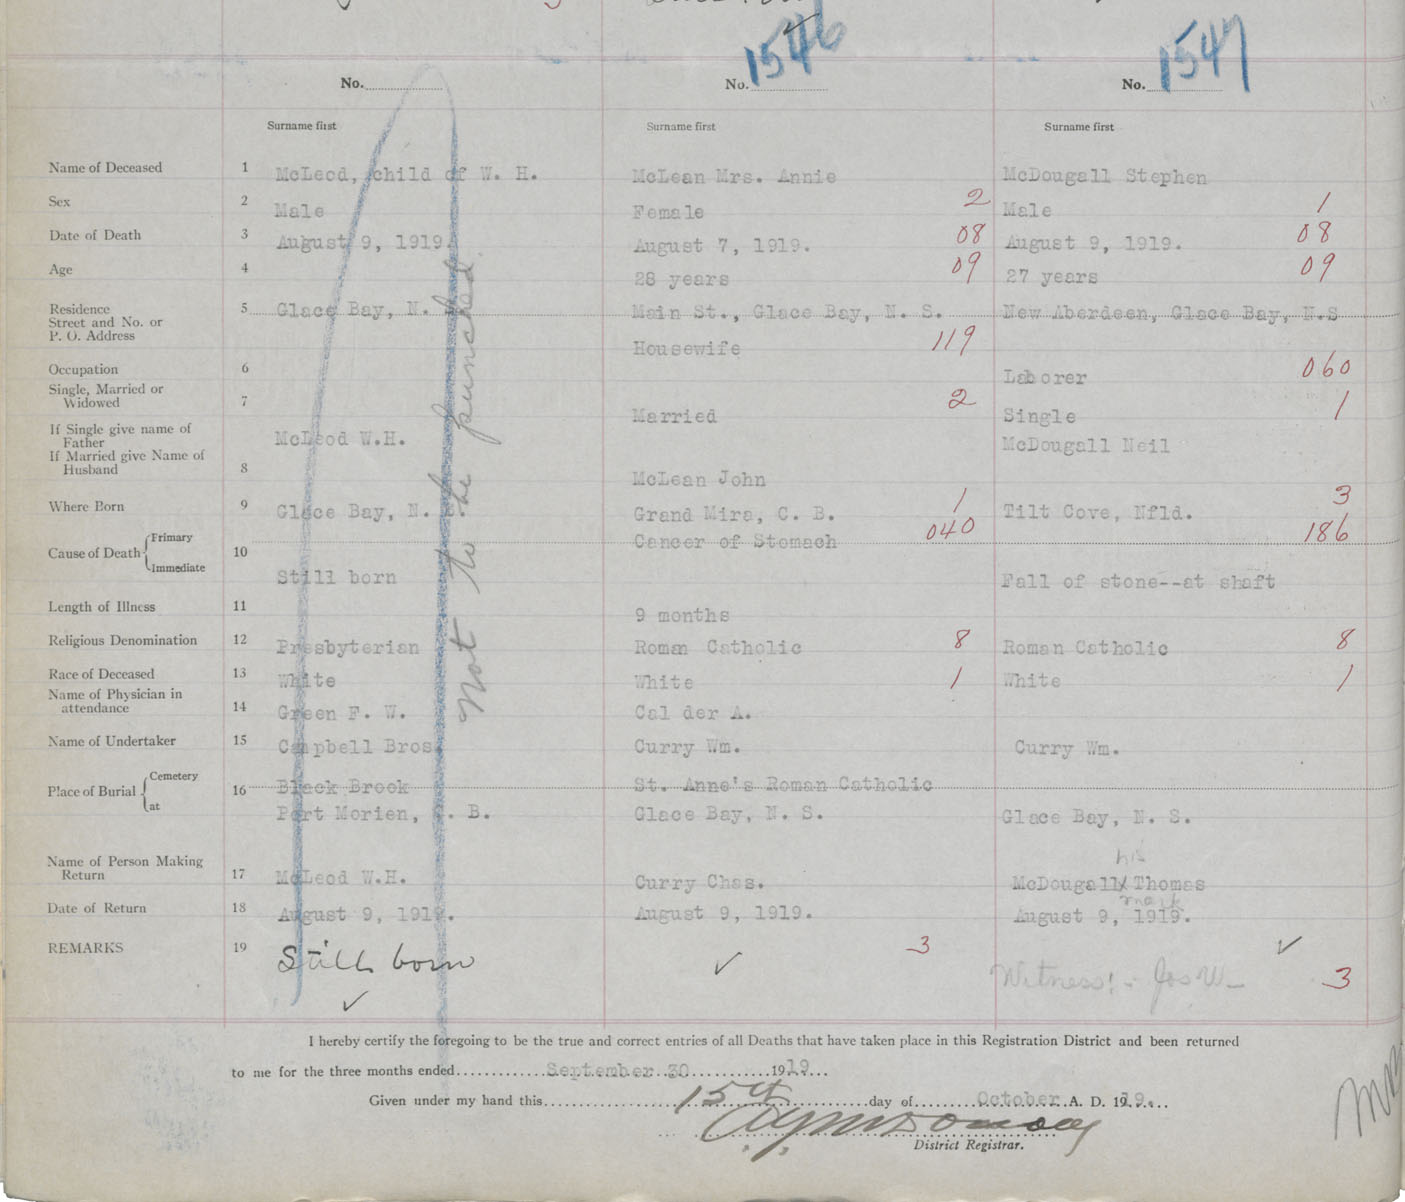 1546
1547
No. No. No.
Surname first Surname first Surname first
Name of Deceased 1 McLeod, child of W. H. McLean Mrs. Annie McDougall Stephen
Sex 2 Male Female 2 Male 1
Date of Death 3 August 9, 1919. August 7, 1919. 08 August 9, 1919. 08
Age 4 28 years 09 27 years 09
Residence
Street and No. or 5 Glace Bay, N. Main St., Glace Bay, N. S. New Aberdeen, Glace Bay, N.S
P. O. Address
Housewife 119
Occupation 6 Laborer 060
Single, Married or
Widowed 7 Married 2 Single 1
If Single give name of
Father McLeod W.H. McDougall Neil
If Married give Name of
Husband 8 McLean John
Where Born 9 Glace Bay, N. Grand Mira, C. B. 1 Tilt Cove, Nfld. 3
Cause of Death Primary 10 Cancer of Stomach 040 186
Immediate Still born Fall of stone--at shaft
Length of Illness 11 9 months
Religious Denomination 12 Presbyterian Roman Catholic 8 Roman Catholic 8
Race of Deceased 13 White White 1 White 1
Name of Physician in
attendance 14 Green F. W. Cal der A.
Name of Undertaker 15 Campbell Bros. Curry Wm. Curry Wm.
Place of Burial Cemetery 16 Black Brook St. Anne's Roman Catholic
at Port Morien, C. B. Glace Bay, N. S. Glace Bay, N. S.
his
Name of Person Making
Return 17 McLeod W.H. Curry Chas. McDougall X Thomas
mark
Date of Return 18 August 9, 1919. August 9, 1919. August 9, 1919.
REMARKS 19 Still born 3
Witness:- Jos W- 3
Not to be punched
I hereby certify the foregoing to be the true and correct entries of all Deaths that have taken place in this Registration District and been returned
to me for the three months ended September 30 1919
Given under my hand this 15th day of October A. D. 1919.
District Registrar.